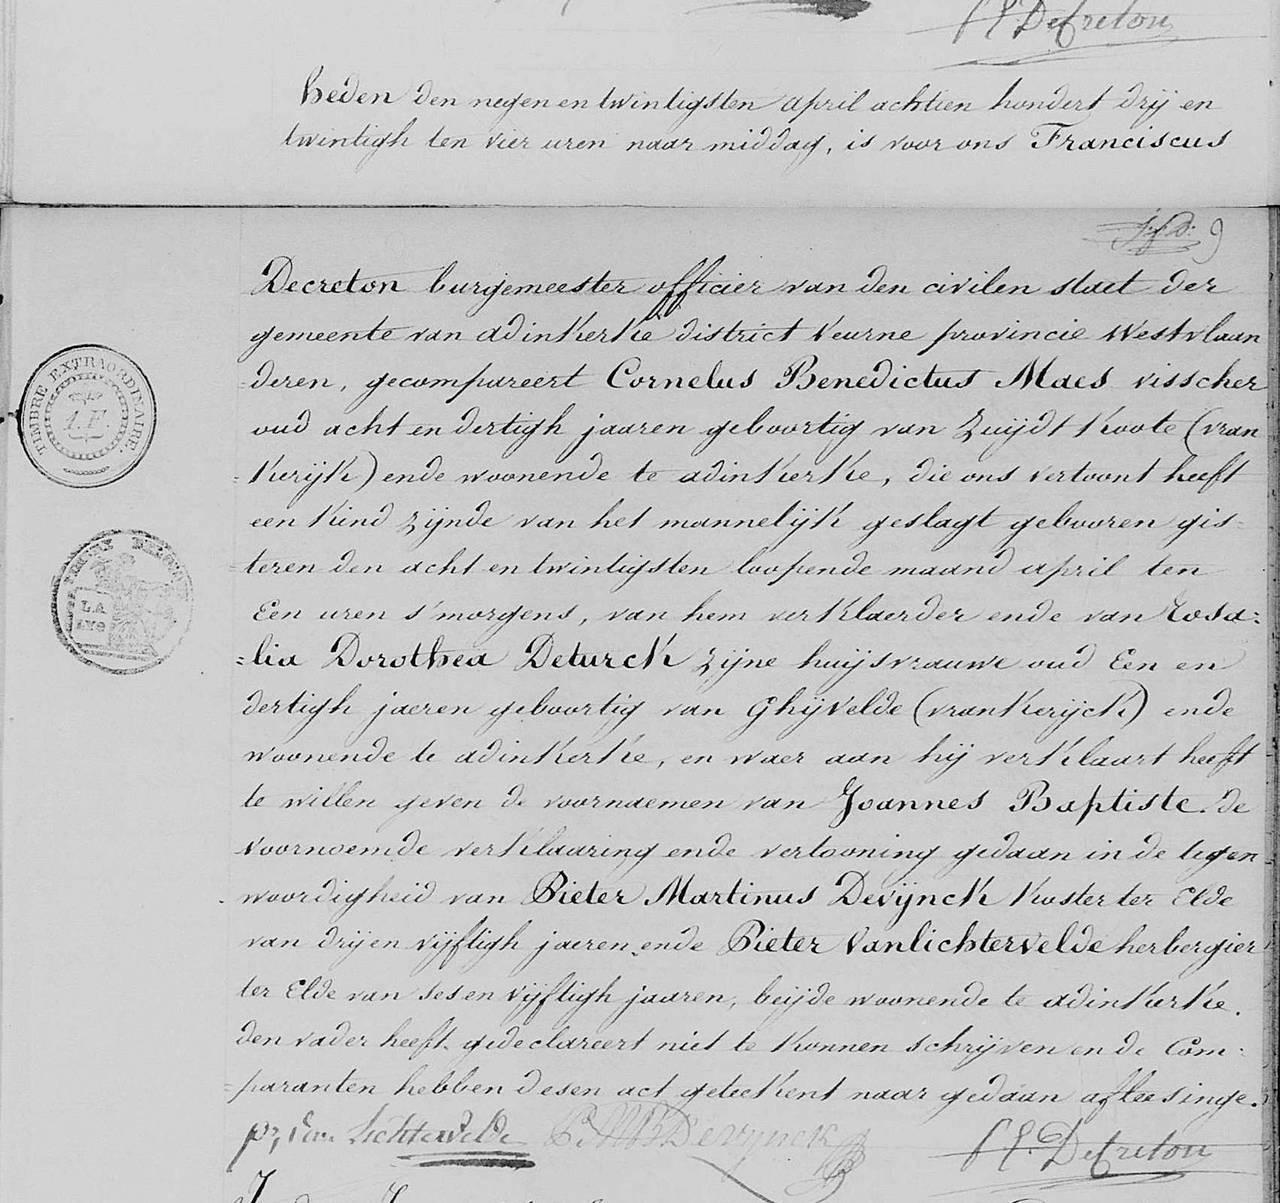 Decreton
heden den negen en twintigsten april achtien hondert drij en
twintigh ten vier uren naar middag, is voor ons Franciscus
9
Decreton burgemeester officier van den civilen staet der
gemeente van adinkerke district Veurne provincie Westvlaan
=deren, gecompareert Cornelus Benedictus Maes visscher
oud acht en dertigh jaaren geboortig van Zuijdt Koote (vran
=Kerijk) ende woonende te adinkerke, die ons vertoont heeft
een Kind zijnde van het mannelijk geslagt gebooren gis=
=teren den acht en twintigsten loopende maand april ten
Een uren s'morgens, van hem verklaerder ende van Rosa=
=lia Dorothea Deturck zijne huijsvrauwe oud Een en
dertigh jaeren geboortig van Ghijvelde (vrankerijck) ende
woonende te adinkerke, en waer aan hij verklaart heeft
te willen geven de voornaemen van Joannes Baptiste. de
voornoemde verklaaring ende vertooning gedaan in de tegen
woordigheid van Pieter Martinus Devijnck Koster ter Elde
van drij en vijftigh jaeren, ende Pieter Vanlichtervelde herbergier
ter Elde van ses en vijftigh jaaren, beijde woonende te adinkerke.
den vader heeft gedeclareert niet te konnen schrijven en de Com=
=paranten hebben desen act geteekent naar gedaan afleesinge.
TIMBRE EXTRAORDINAIRE.
1.F.
LA
pr, Van Lichtevelde P. M Devynck Decreton